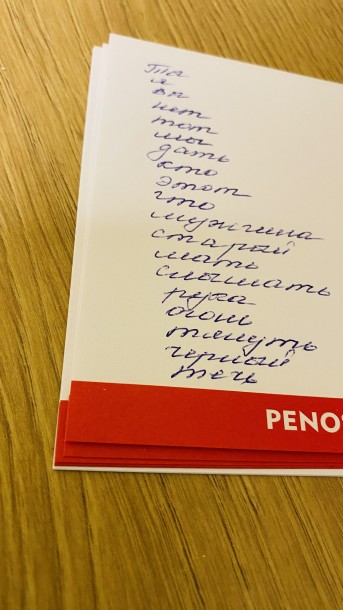 Та
я
вы
нет
тот
мы
дать
кто
этот
что
мужчина
старый
мать
слышать
рука
огонь
тянуть
черный
течь
PENO